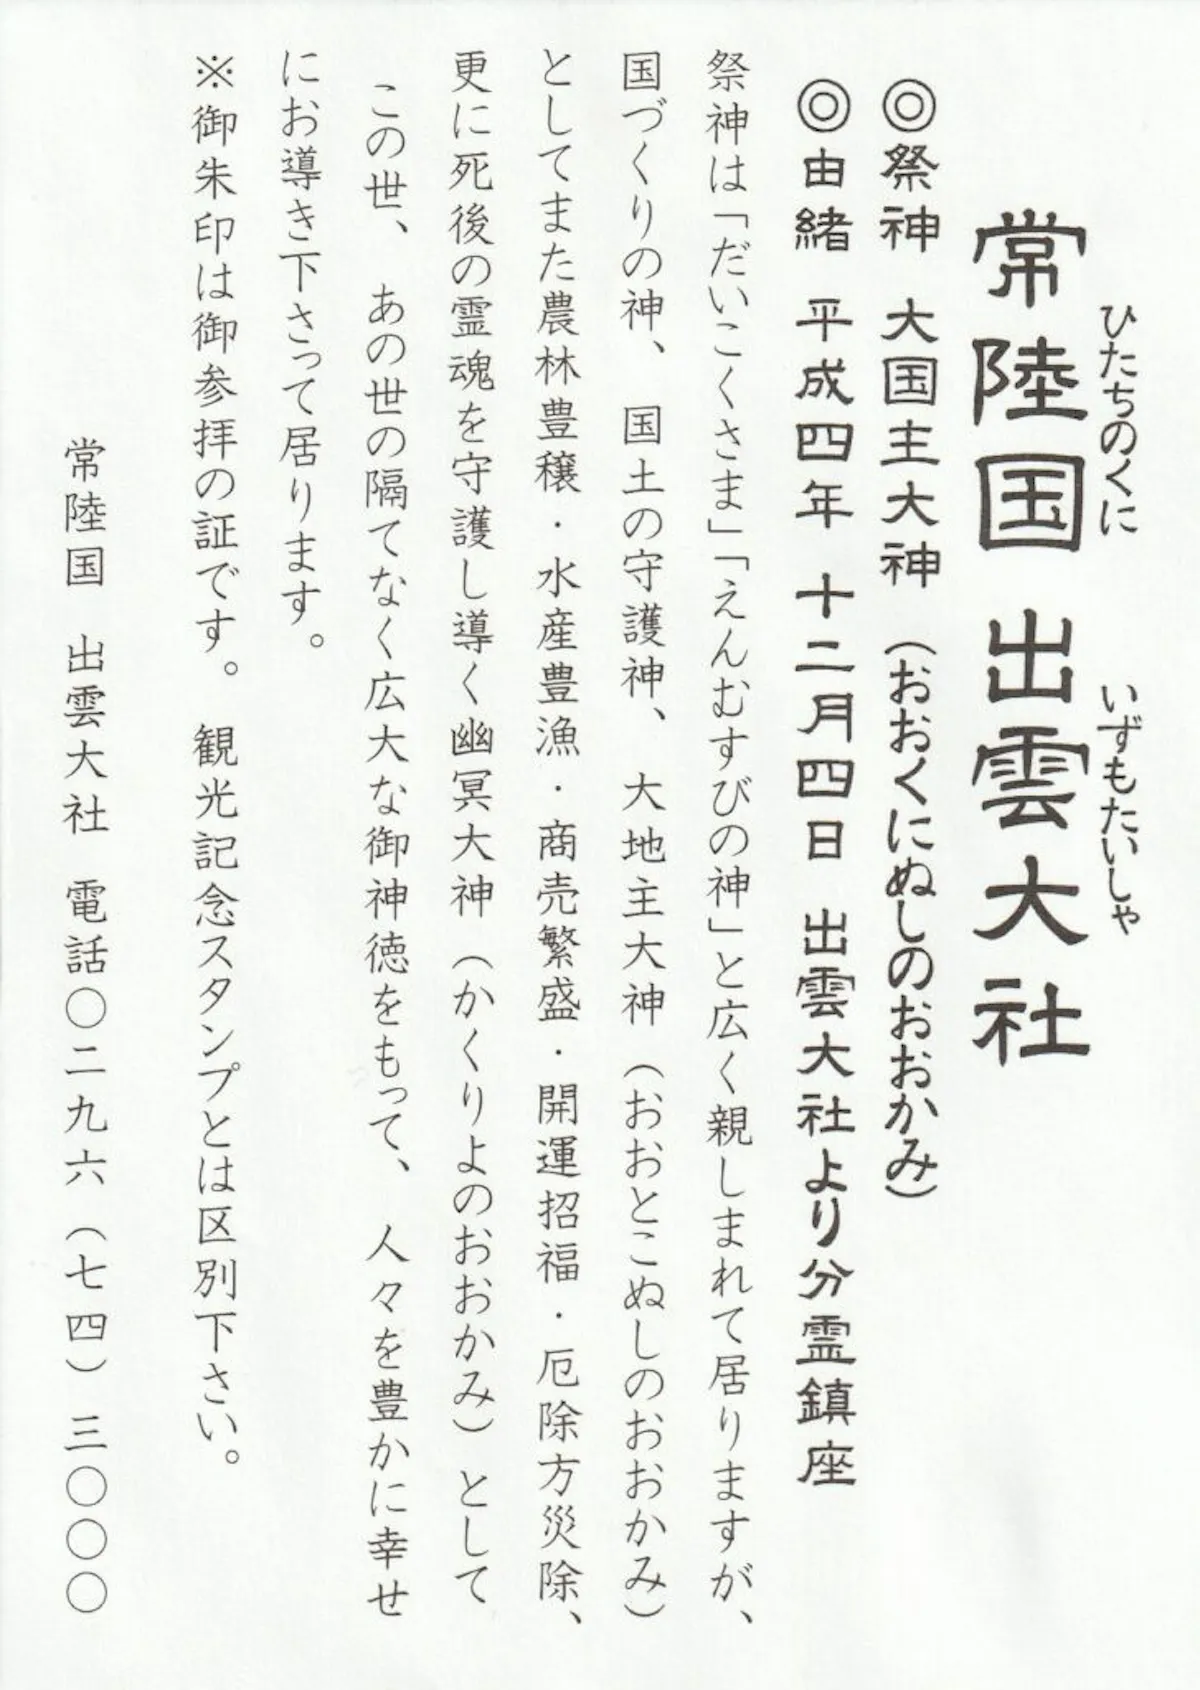 ひたちのくに いずもたいしゃ
常陸国 出雲大社
◎祭神 大国主大神（おおくにぬしのおおかみ）
◎由緒 平成四年 十二月四日 出雲大社より分霊鎮座
祭神は「だいこくさま」「えんむすびの神」と広く親しまれて居りますが、
国づくりの神、国土の守護神、大地主大神（おおとこぬしのおおかみ）
としてまた農林豊穣・水産豊漁・商売繁盛・開運招福・厄除方災除、
更に死後の霊魂を守護し導く幽冥大神（かくりよのおおかみ）として
この世、あの世の隔てなく広大な御神徳をもって、人々を豊かに幸せ
にお導き下さって居ります。
※御朱印は御参拝の証です。観光記念スタンプとは区別下さい。
常陸国 出雲大社 電話〇二九六（七四）三〇〇〇